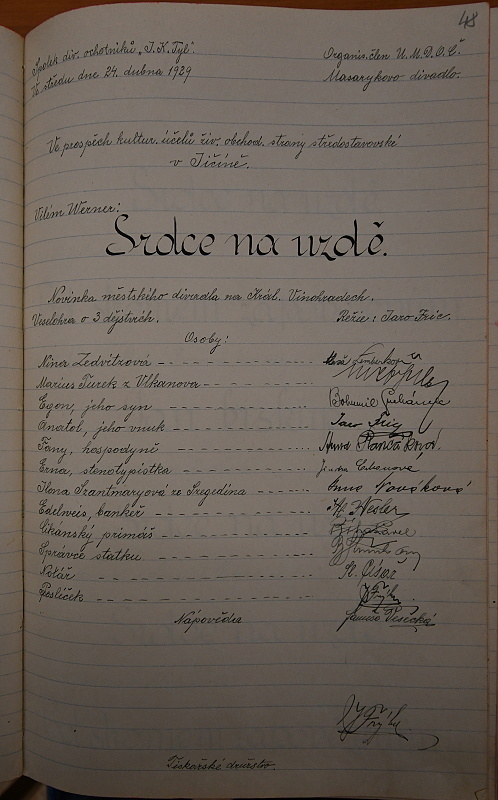 48
Spolek div. ochotníků „J. K. Tyl“.
Organis. člen Ú. M. D. O. Č.
Ve středu dne 24. dubna 1929
Masarykovo divadlo.
Ve prospěch kultur. účelů živ. obchod. strany středostavovské
v Jičíně.
Vilém Werner:
Srdce na uzdě.
Novinka městského divadla na Král. Vinohradech.
Veselohra o 3 dějstvích.
Režie: Jaro Fric.
Osoby:
Nina Zedvitzová
Marius Turek z Vlkanova
Egon, jeho syn Bohumil
Anatol, jeho vnuk Jaro Fric
Fany, hospodyně
Erna, stenotypistka
Ilona Szantmaryová ze Szegedina Anna Nováková
Edelweis, bankéř Wesler
Cikánský primáš
Správce statku
Notář
Poslíček
Nápověda
Tiskařské družstvo.